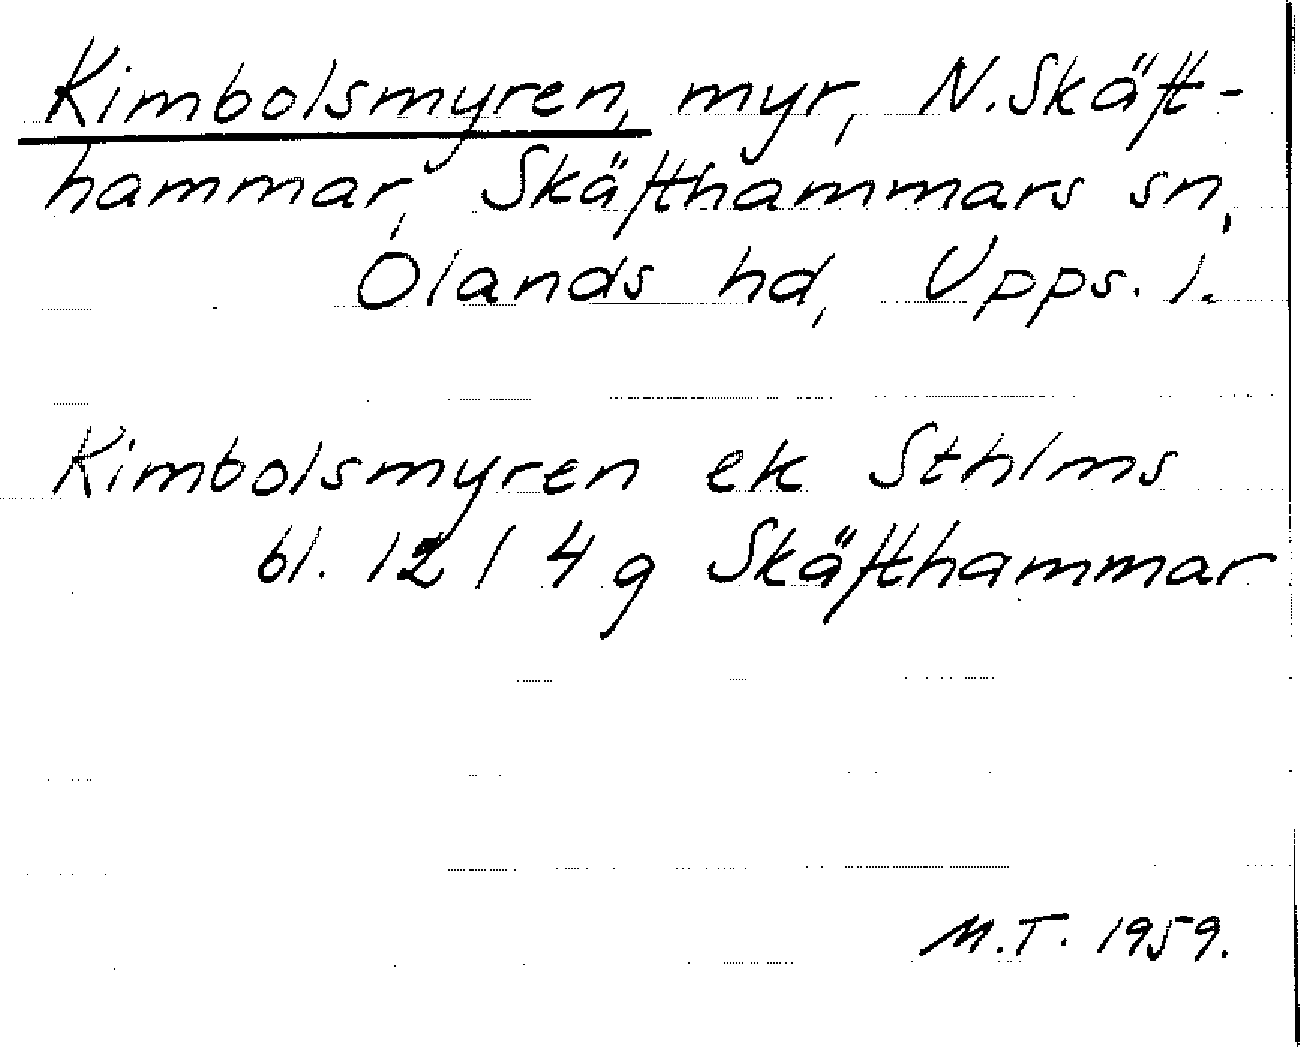 Kimbolsmyren, myr, N. Skäft-
hammar, Skäfthammars sn,
Olands hd, Upps. l.
Kimbolsmyren ek Sthlms
bl. 12 / 4 g Skäfthammar
M.T. 1959.